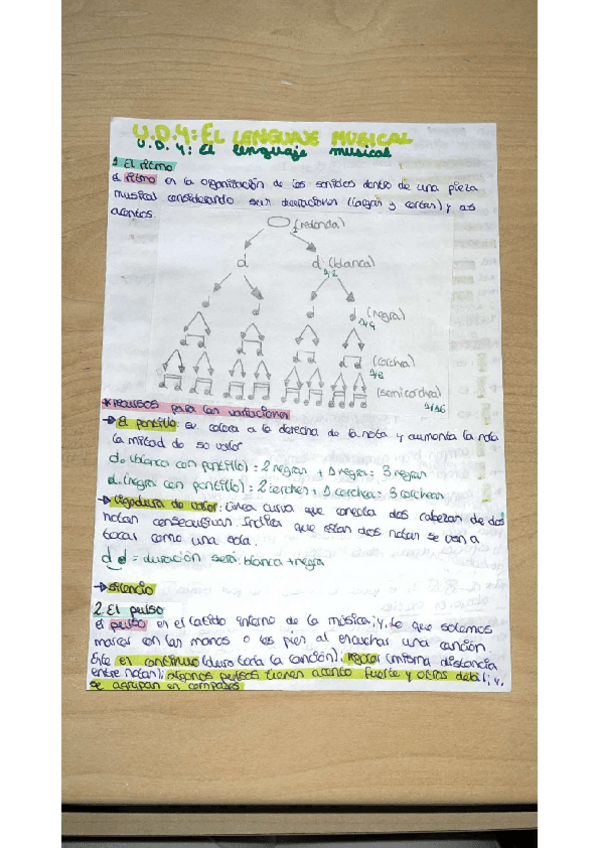 U.D.4: EL LENGUAJE MUSICAL
U.D. 4: El lenguaje musical
1 El ritmo
El ritmo es la organización de los sonidos dentro de una pieza
musical considerando sus duraciones (largas y cortas) y as
acentos.
(redonda)
(blanca)
1/2
(negra)
1/4
(corchea)
1/8
(semicorchea)
1/16
* recursos para las variaciones
→ El pontillo: se coloca a la derecha de la nota y aumenta la nota
la mitad de so valor
d. (blanca con pontillo) = 2 negras + 1 negra = 3 negras
d. (negra con pontillo) = 2 corcheas + 1 corchea = 3 corcheas
→ Ligadura de valor: línea curva que conecta dos cabezas de dos
notas consecutivas. Indica que estas dos notas se van a
tocar como una sola.
d d = duración será: blanca + negra
→ silencio
2. El pulso
El pulso es el latido interno de la música; y, lo que solemos
marcar con las manos o los pies al escuchar una canción.
Este es continuo (dura toda la canción); regular (misma distancia
entre notas); algunos pulsos tienen acento fuerte y otros débil; y,
se agrupan en compases